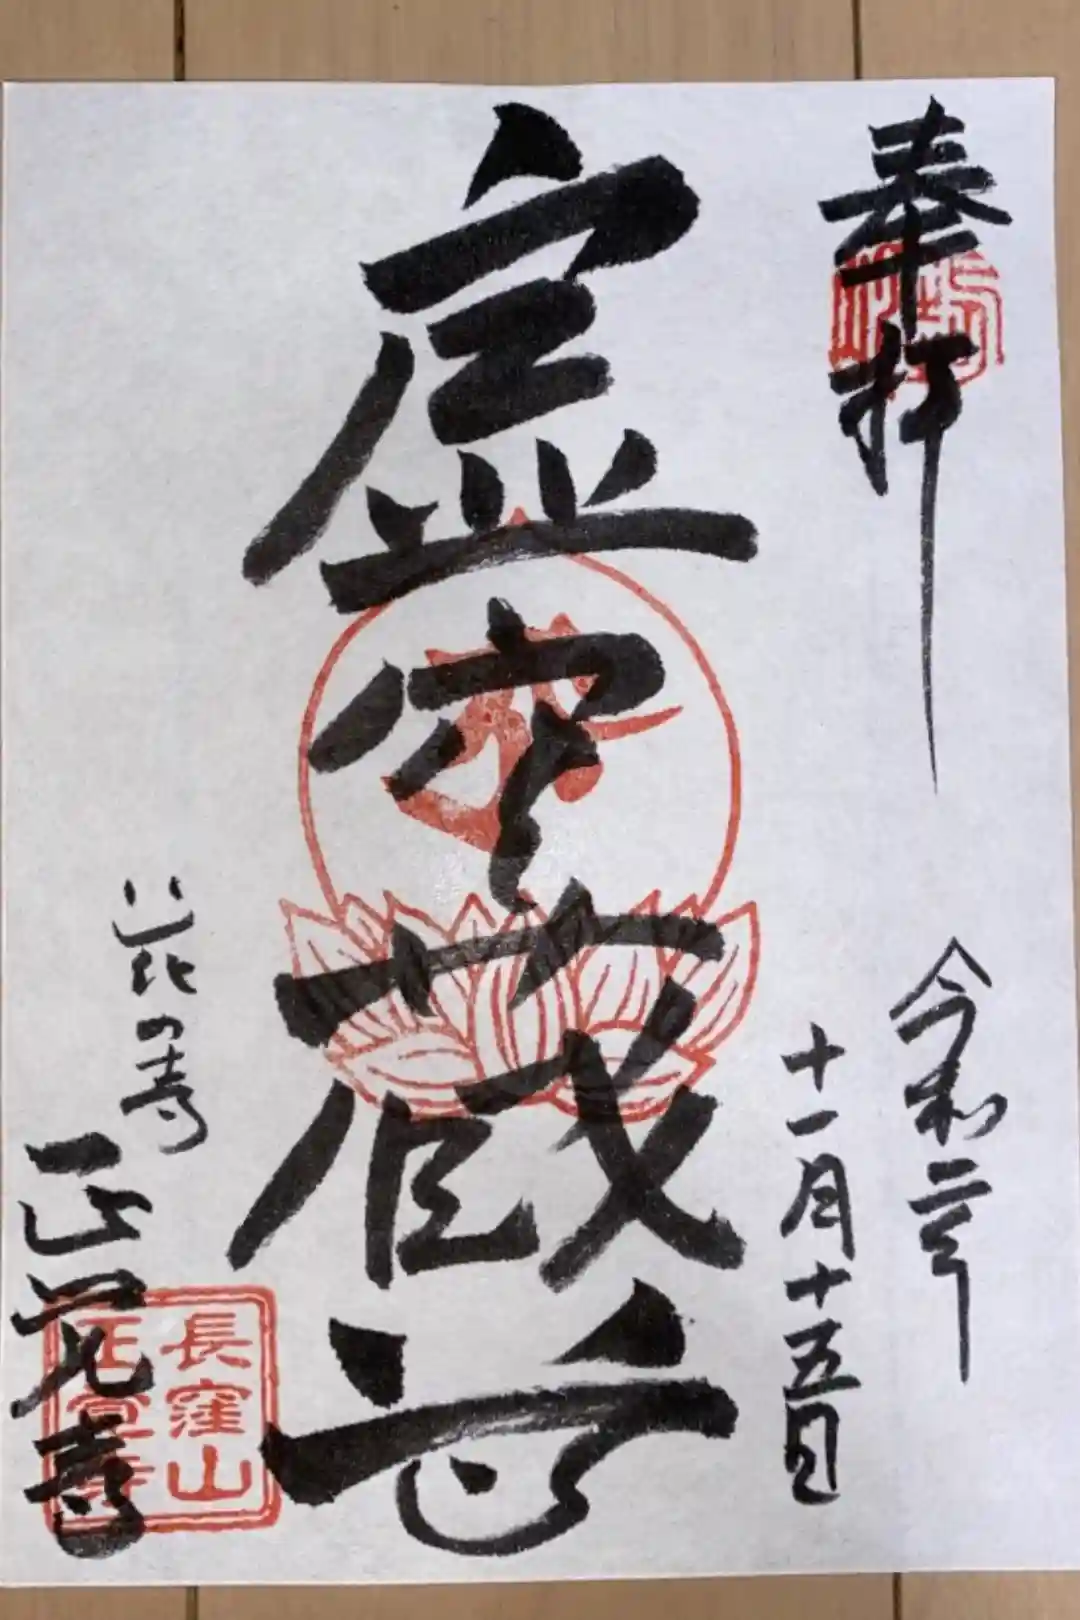 奉拝
令和二年
十一月十五日
虚空蔵尊
花の寺
正覚寺
長窪山
正覚寺